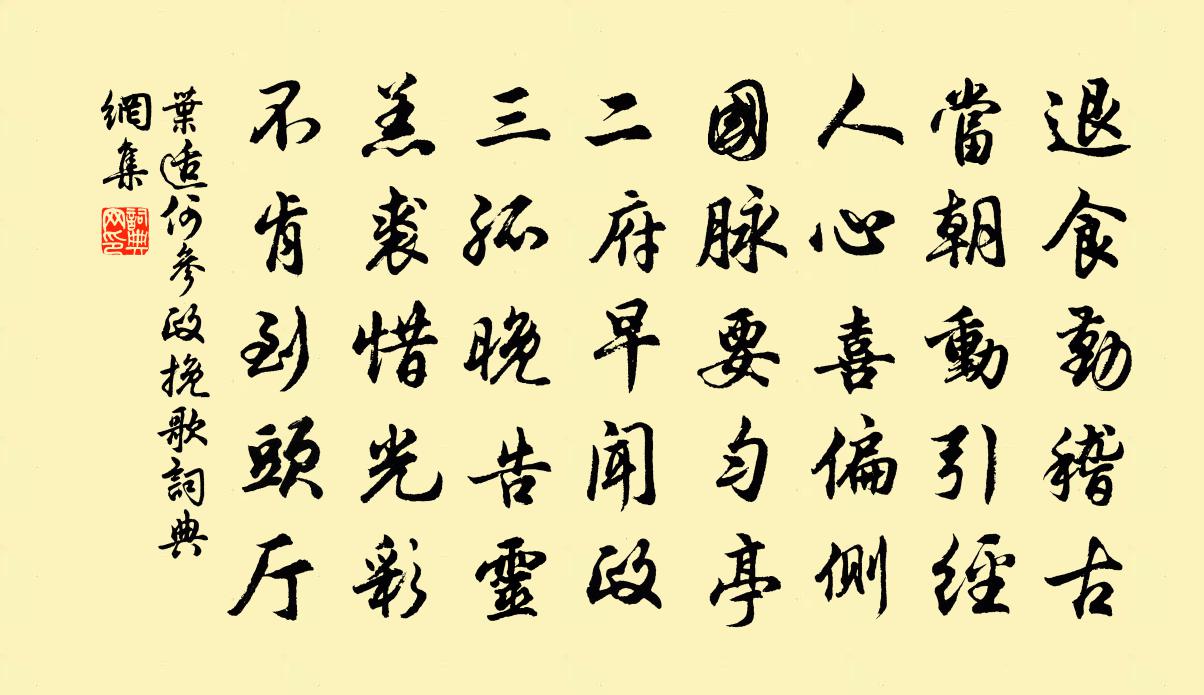 退食勤稽古
當朝動引經
人心喜偏側
國脉要勻亭
二府早聞政
三孤晚告靈
羔裘惜光彩
不肯到頭厅
葉適何參政挽歌詞典
網集
詞典
网印